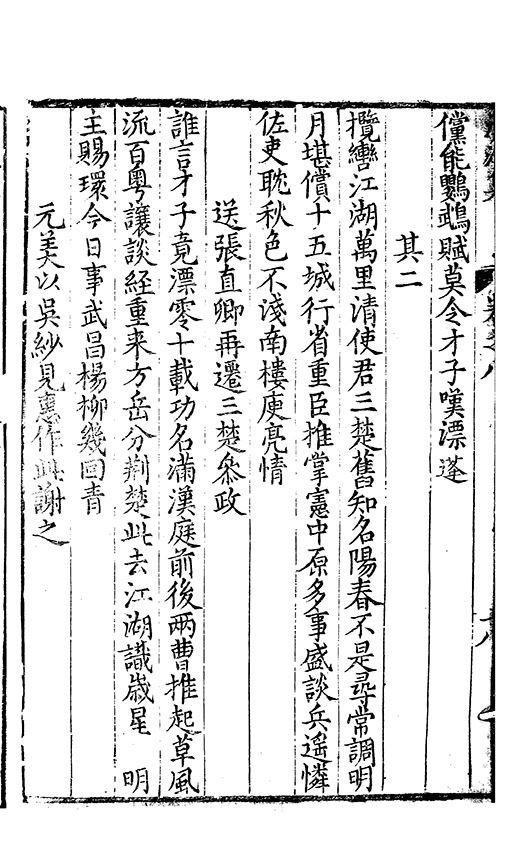 儻能鸚鵡賦莫令才子嘆漂蓬
其二
攬轡江湖萬里清使君三楚舊知名陽春不是尋常調明
月堪償十五城行省重臣推掌憲中原多事盛談兵遥憐
佐吏耽秋色不淺南樓庾亮情
送張直卿再遷三楚叅政
誰言才子竟漂零十載功名滿漢庭前後兩曹推起草風
流百粤讓談經重来方岳分荆楚此去江湖識歲星 明
主賜環今日事武昌楊柳幾回青
元美以吳紗見惠作此謝之